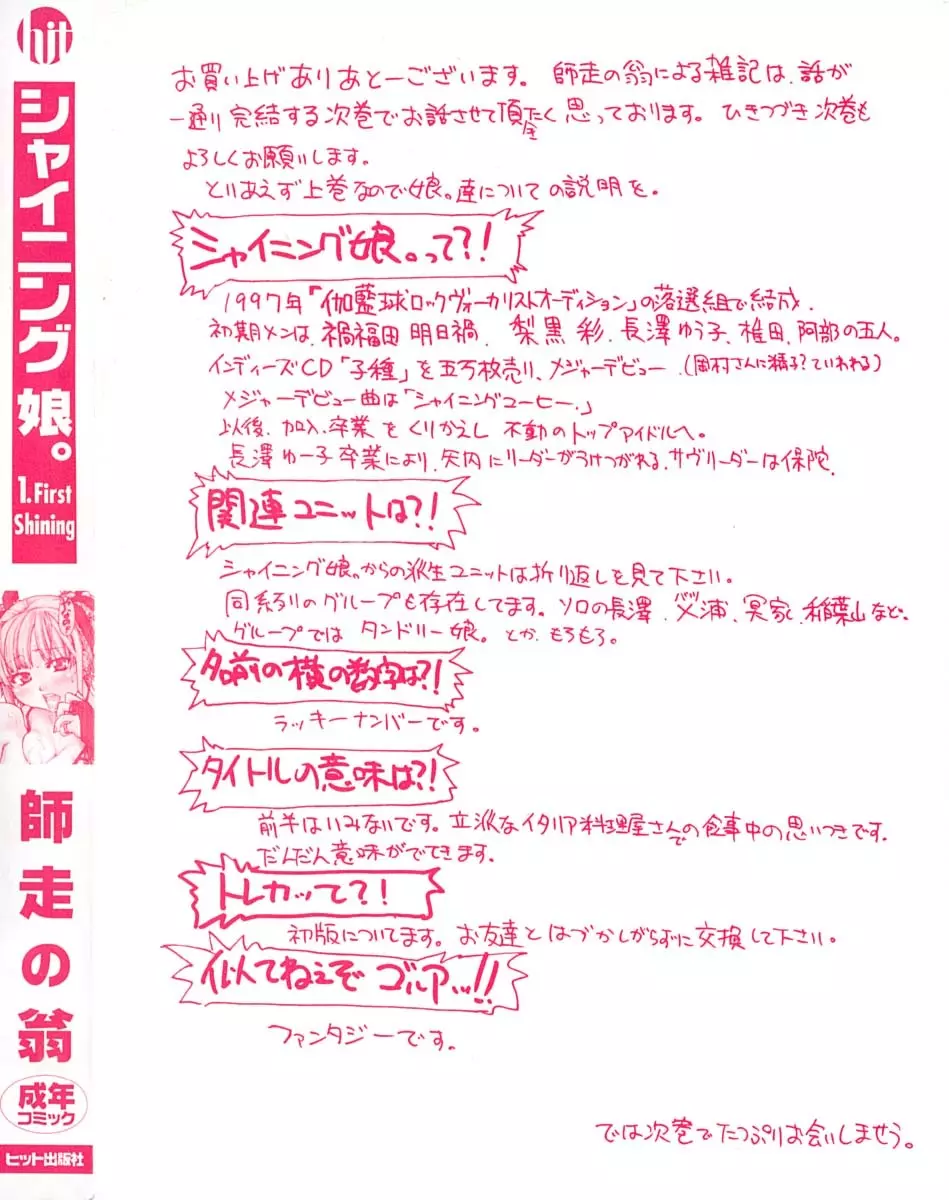 hit
シャイニング娘。
1.First
Shining
師走の翁
成年
コミック
ヒット出版社
お買い上げありあとーございます。 師走の翁による雑記は、話が
一通り完結する次巻でお話させて頂たく思っております。 ひきつづき次巻も
よろしくお願いします。
とりあえず上巻なので娘。達についての説明を。
シャイニング娘。って?!
1997年「伽藍球ロックヴォーカリストオーディション」の落選組で結成。
初期メンは、禍福田 明日禍、梨黒 彩、長澤ゆう子、椎田、阿部の五人。
インディーズCD「子種」を五万枚売り、メジャーデビュー。(岡村さんに精子?ていわれる)
メジャーデビュー曲は「シャイニングコーヒー。」
以後、加入、卒業をくりかえし 不動のトップアイドルへ。
長澤ゆー子卒業により、矢内にリーダーがうけつがれる、サヴリーダーは保陀。
関連ユニットは?!
シャイニング娘。からの派生ユニットは折り返しを見て下さい。
同系列のグループも存在してます。ソロの長澤、浦、冥家、稲葉山など。
グループでは タンドリー娘。とか、もろもろ。
名前の横の数字は?!
ラッキーナンバーです。
タイトルの意味は?!
前半はいみないです。立派なイタリア料理屋さんでの食事中の思いつきです。
だんだん意味がでてきます。
トレカッて?!
初版についてます。お友達とはづかしがらずに交換して下さい。
似てねぇぞ ゴルアッ!!
ファンタジーです。
では次巻でたっぷりお会いしませう。